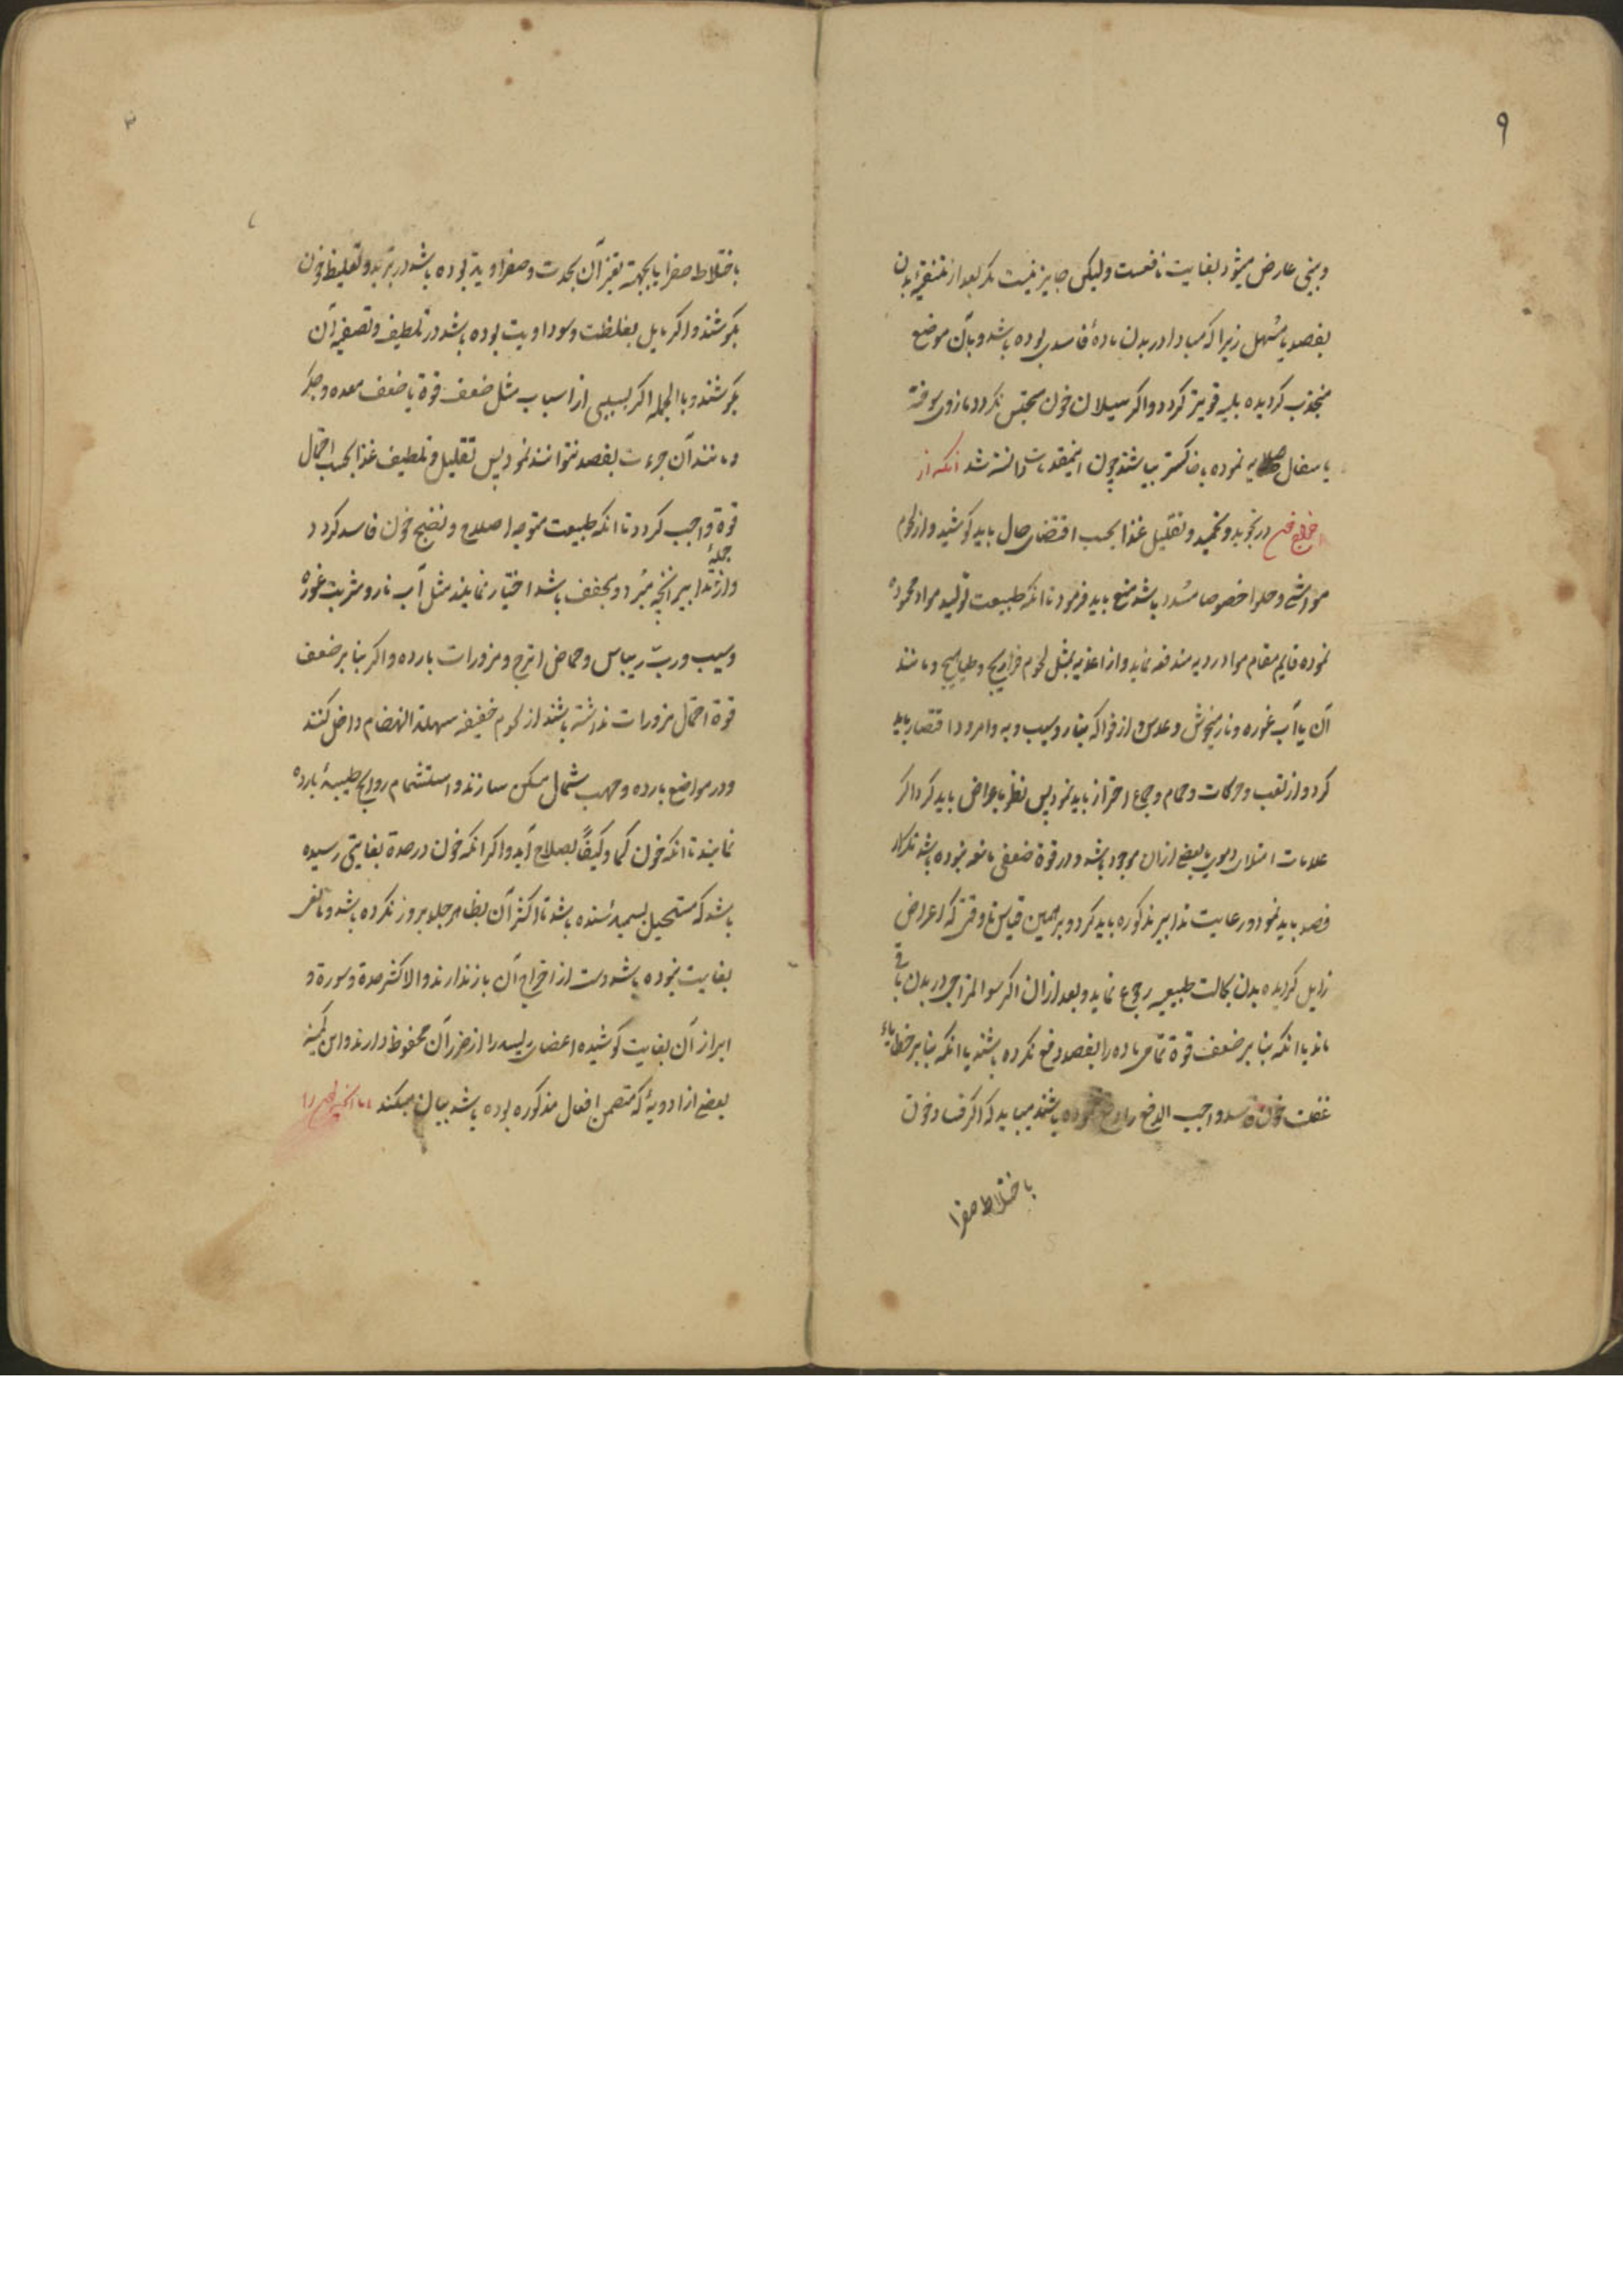 ۹
و بینی عارض میشود بغایت نافعست ولیکن جایز نیست مکر بعد از تنقیهٔ بدن
بفصد یا مسهل زیرا که مبادا در بدن مادهٔ فاسدی بوده باشد و بآن موضع
منجذب کردیده بلیه قویتر کردد و اکر سیلان خون محتبس نکردد مازوی سوخته
یا سفال صلایه نموده یا خاکستر بپاشند چون اینمقدمات دانسته شد انکه از
در تجوید و تقلیل غذا بحسب اقتضای حال باید کوشید و از لحوم
مواشی و حلوا خصوصا مسدد باشد منع باید فرمود تا انکه طبیعت تولید مواد محموده
نموده قایم مقام مواد ردیه مندفعه نماید و از اغذیه بمثل لحوم فراریج و طیاهیج و مانند
آن با آب غوره و نار میخوش و عدس و از فواکه بنار و سیب و به و امرود اقتصار باید
کرد و از تعب و حرکات و حمام و جماع احتراز باید نمود پس نظر باعراض باید کرد اکر
علامات امتلای دموی یا بعضی ازان موجود باشد و در قوة ضعفی مانعه نبوده باشد تکرار
فصد باید نمود و رعایت تدابیر مذکوره باید کرد و برهمین قیاس تا وقتی که اعراض
زایل کردیده بدن بحالت طبیعیه رجوع نماید و بعد ازان اکر سوء المزاجی در بدن باقی
ماند یا انکه بنا بر ضعف قوة تمامی ماده را بفصد دفع نکرده باشند یا انکه بنا بر خطایا
غفلت خون فاسد واجب الدفع را دفع ننموده باشند میباید که اکر فساد خون
باختلاط صفرا
۳
باختلاط صفرا یا بجهة تغیر آن بحدت و صفراویة بوده باشد در تبرید و تغلیظ خون
بکوشند و اکر مایل بغلظت و سوداویت بوده باشد در تلطیف و تصفیه آن
بکوشند و بالجمله اکر بسببی از اسباب مثل ضعف قوة یا ضعف معده و جکر
و مانند آن جرءت بفصد نتوانند نمود پس تقلیل و تلطیف غذا بحسب احتمال
قوة واجب کردد تا انکه طبیعت متوجه اصلاح و نضج خون فاسد کردد
و از جملهٔ تدابیر انچه مبرد و مجفف باشد اختیار نمایند مثل آب نار و شربت غوره
و سیب و رب ریباس و حماض اترج و مزورات بارده و اکر بنا بر ضعف
قوة احتمال مزورات نداشته باشند از لحوم خفیفه سهلة الانهضام داخل کنند
و در مواضع بارده و مهب شمال مسکن سازند و استشمام روایح طیبهٔ بارده
نمایند تا انکه خون کما و کیفاً بصلاح آید و اکر انکه خون در حدة بغایتی رسیده
باشد که مستحیل بسمیة شده باشد تا اکثر آن بظاهر جلد بروز نکرده باشد و مالنفر
بغایت نبوده باشد دست از اخراج آن باز ندارند و الا کسر حدة و سورة و
ابراز آن بغایت کوشیده اعضای رئیسه را از ضرر آن محفوظ دارند و این کمینه
بعضی از ادویهٔ که متضمن افعال مذکوره بوده باشد بیان میکند اما